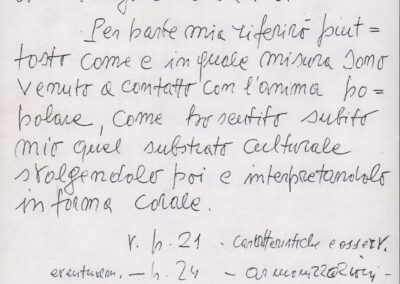 Per parte mia riferirò piut=
tosto come e in quale misura sono
venuto a contatto con l'anima po=
polare, come ho sentito subito
mio quel substrato culturale
svolgendolo poi e interpretandolo
in forma corale.
v. p. 21 - caratteristiche e osserv.
eventualm. - p. 24 - armonizzazioni -